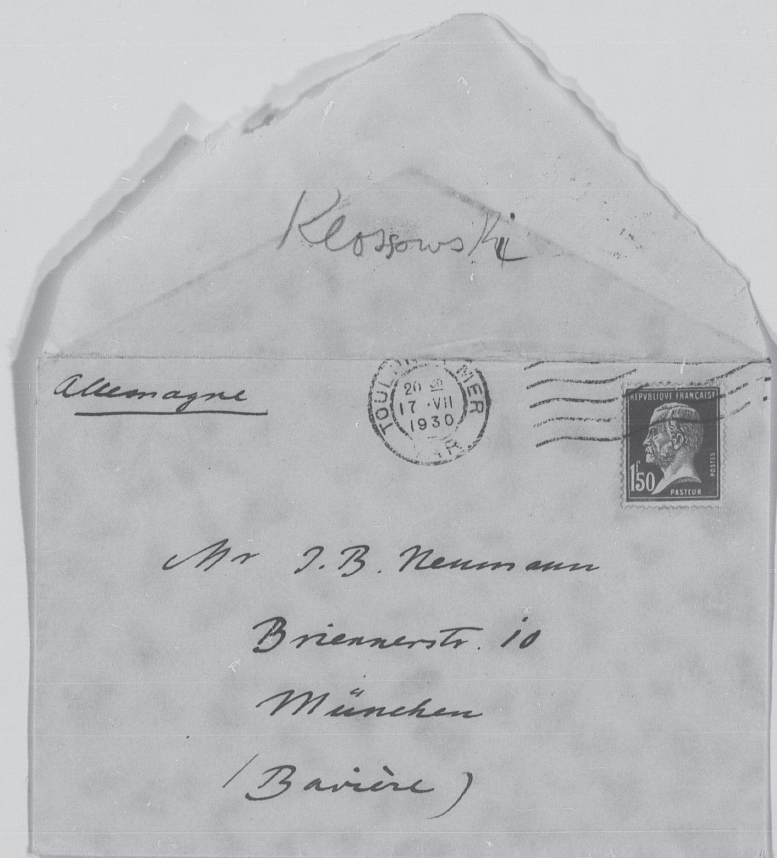 Klossowski
Allemagne
TOULON S MER
20 30
17 · VII
1930
VAR
REPVBLIQUE FRANÇAISE
1f50
POSTES
PASTEUR
Mr J. B. Neumann
Briennerstr. 10
München
(Bavière)